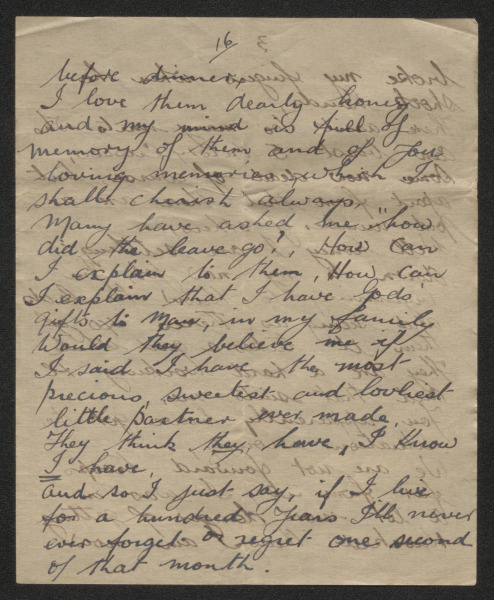 16
before dinner,
I love them dearly honey
and my mind is full of
memory of them and of you
loving memories, which I
shall cherish always,
Many have asked me "how
did the leave go?", How can
I explain to them, How can
I explain that I have Gods
gifts to Man, in my family
Would they believe me if
I said I have the most
precious, sweetest and lovliest
little partner ever made,
They think they have, I know
I have,
and so I just say, if I live
for a hundred years I'll never
ever forget or regret one second
of that month.